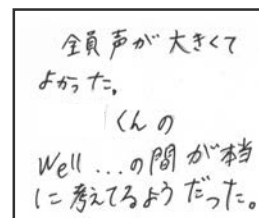 全員声が大きくて
よかった。
くんの
Well...の間が本当
に考えてるようだった。